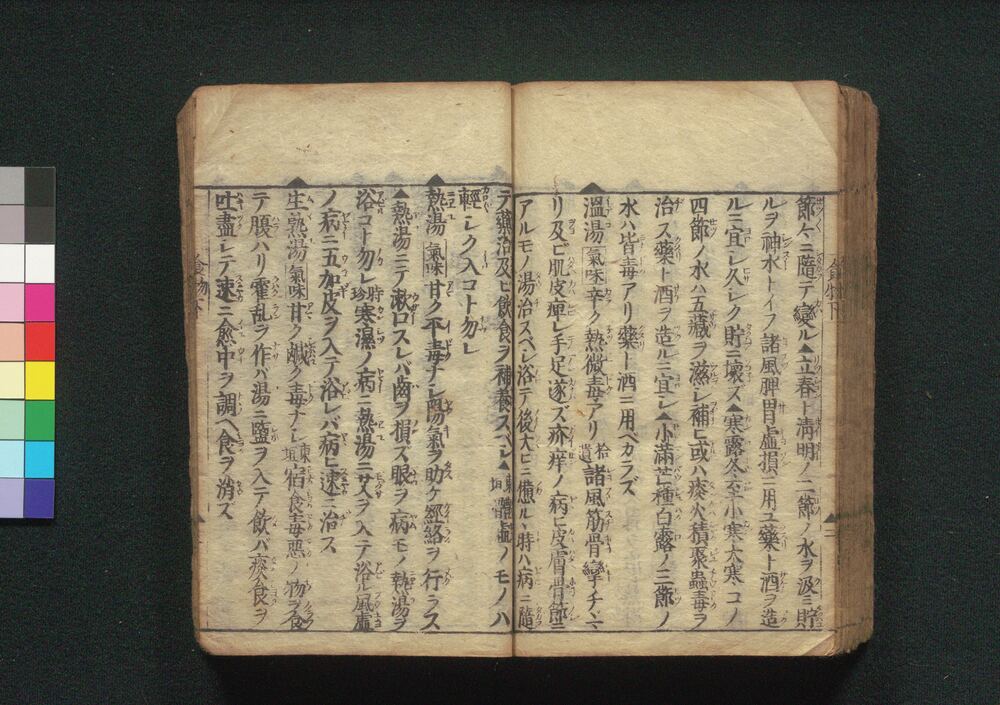 節々ニ隨テ變ル▲立春ト清明ノ二節ノ水ヲ汲ミ貯
ルヲ神水トイフ諸風脾胃虛損ニ用ユ藥ト酒ヲ造
ルニ宜シ久シク貯ニ壞ズ▲寒露冬至小寒大寒コノ
四節ノ水ハ五藏ヲ滋シ補ヒ或ハ痰火積聚蟲毒ヲ
治ス藥ト酒ヲ造ルニ宜シ▲小滿芒種白露ノ三節ノ
水ハ皆毒アリ藥ト酒ニ用ベカラズ
溫湯 氣味 辛ク熱微毒アリ 拾遺 諸風筋骨攣チヾマ
リ及ビ肌皮痺レ手足遂ズ疥痒ノ病ヒ皮膚骨節ニ
アルモノ湯治スベシ浴テ後大ヒニ憊ル丶時ハ病ニ隨
テ藥治及ヒ飲食ヲ補養スベシ▲ 東垣 體虛ノモノハ
輕シク入コト勿レ
熱湯 氣味 甘ク平毒ナシ陽氣ヲ助ケ經絡ヲ行ラス
▲熱湯ニテ漱口スレバ歯ヲ損ズ眼ヲ病モノ熱湯ヲ
浴コト勿レ 時珍 寒濕ノ病ニ熱湯ニ艾ヲ入テ浴風虛
ノ病ニ五加皮ヲ入テ浴レバ病ヒ速ニ治ス
生熟湯 氣味 甘ク鹹ク毒ナシ 東垣 宿食毒惡ノ物ヲ食
テ腹ハリ霍乱ヲ作バ湯ニ鹽ヲ入テ飲バ痰食ヲ
吐盡シテ速ニ愈中ヲ調ヘ食ヲ消ス
食物下